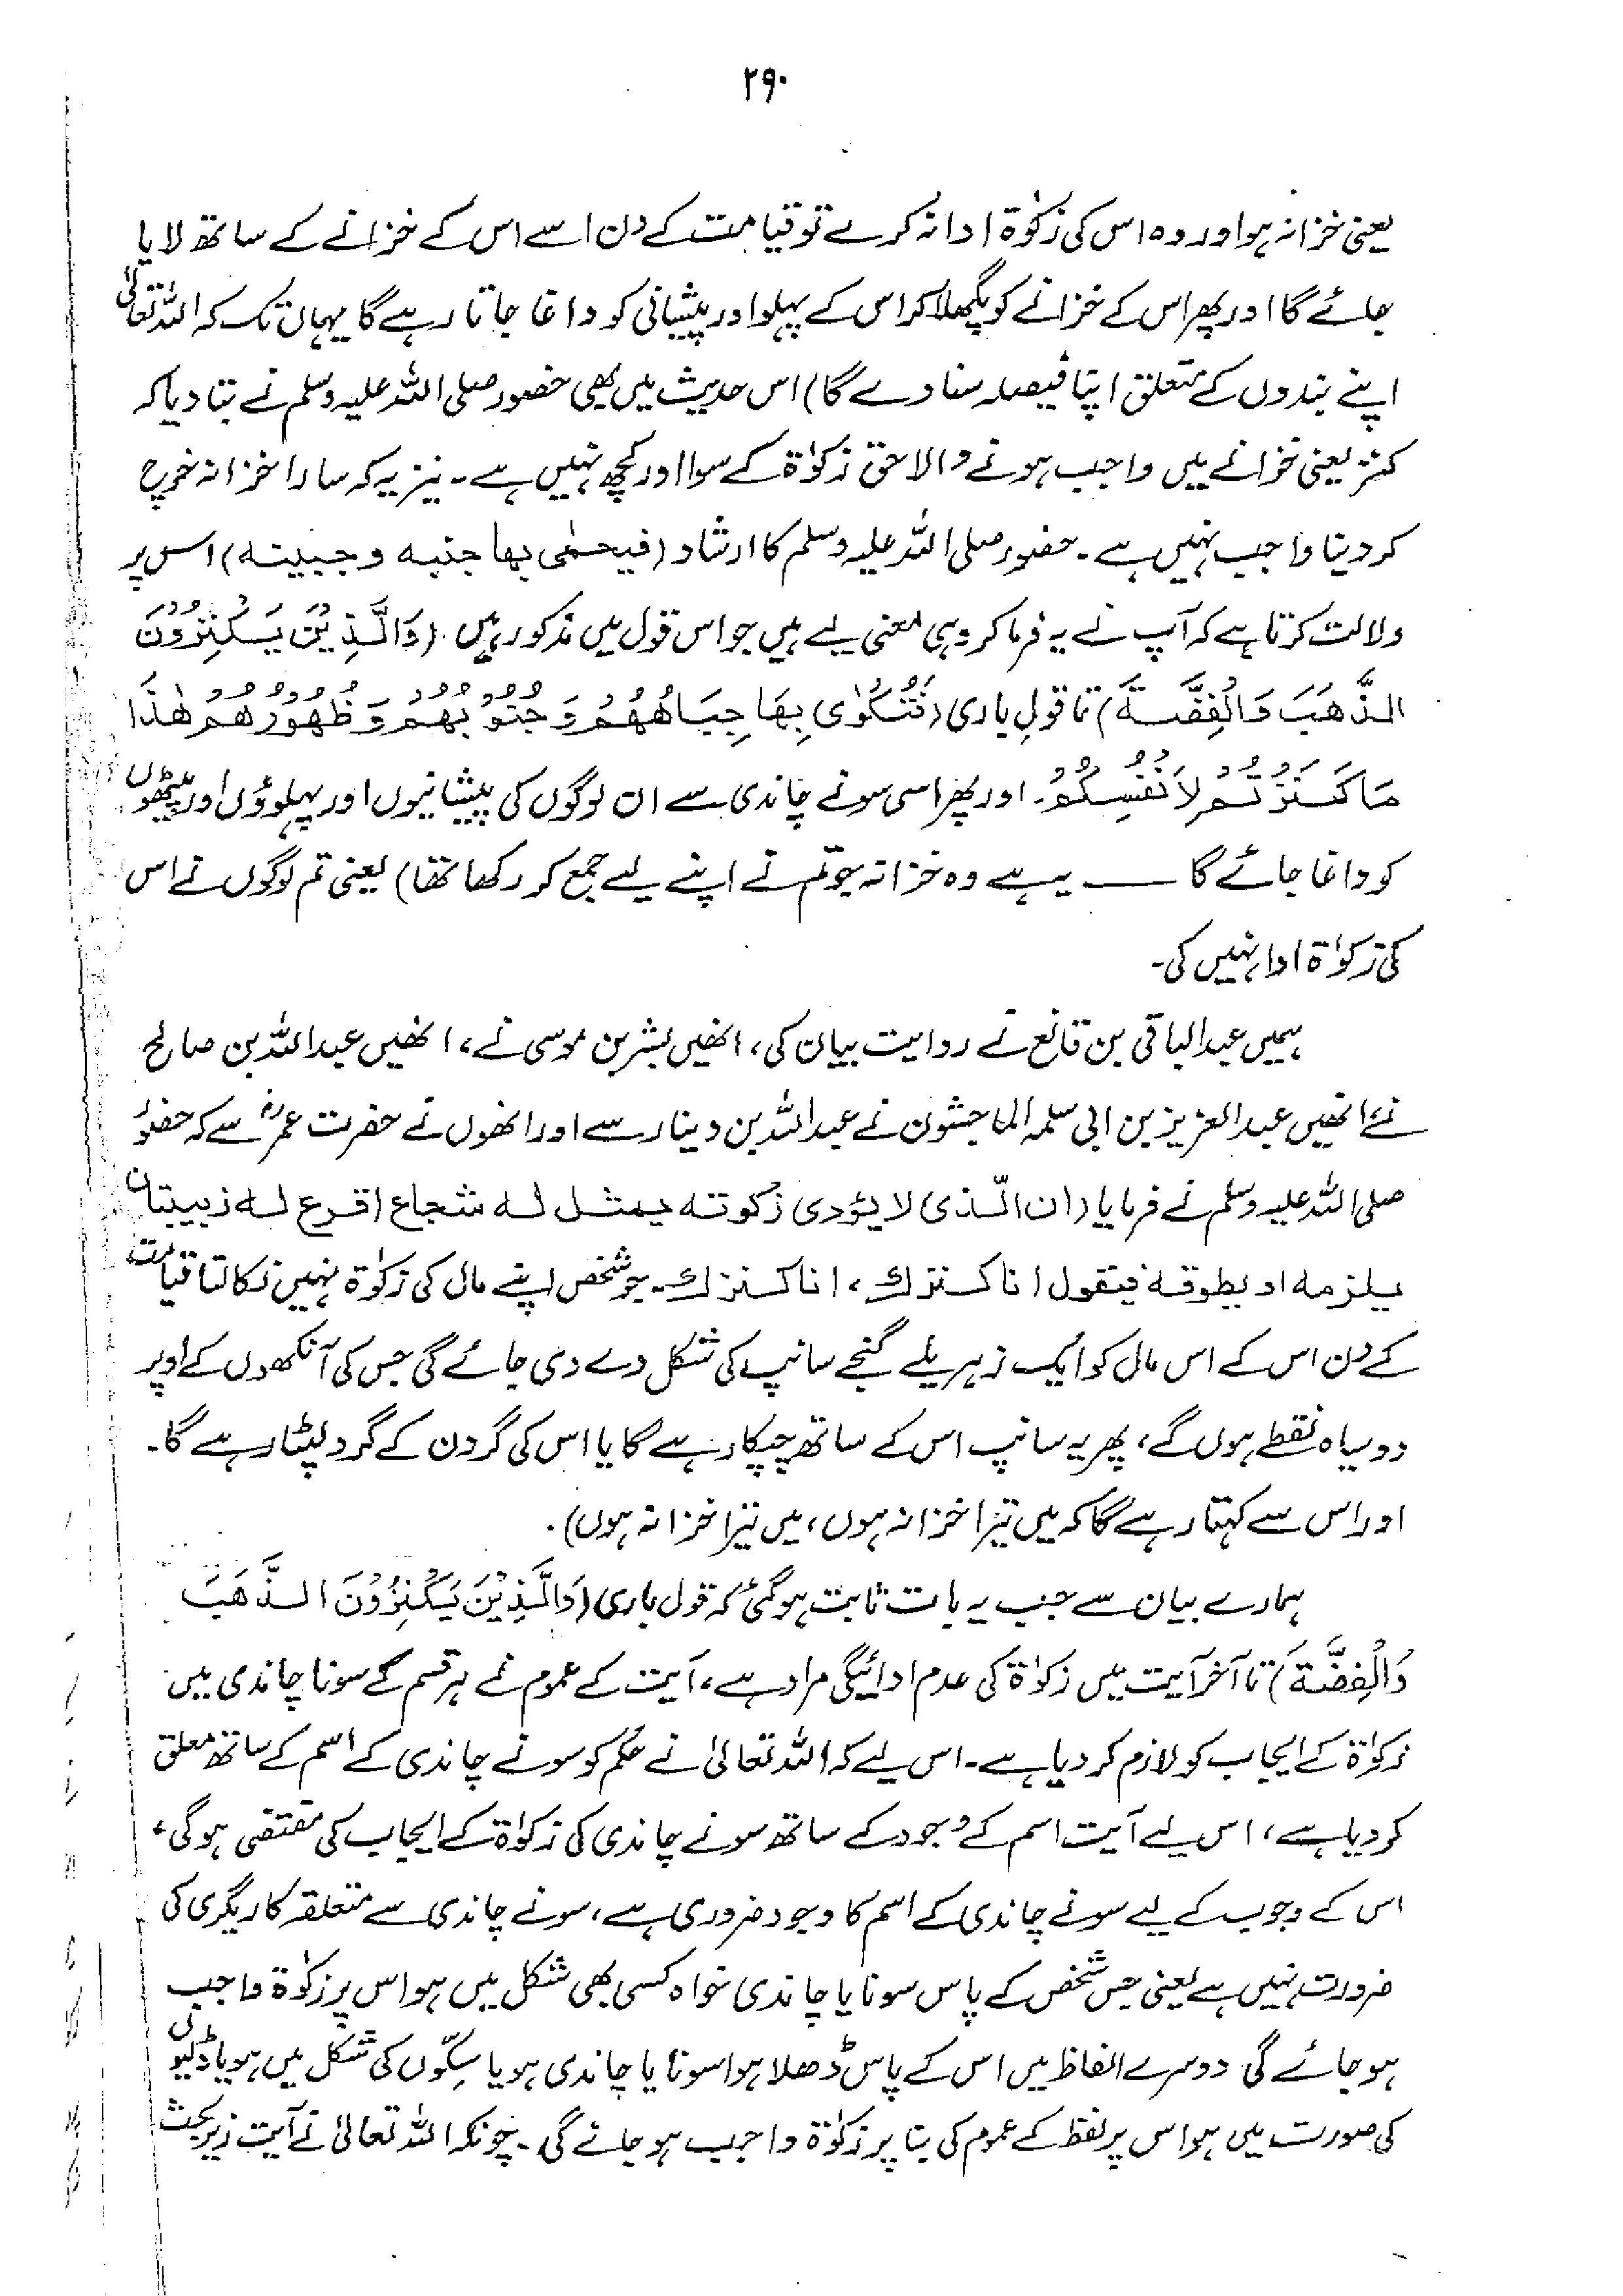 ۲۹۰
یعنی خزانہ ہو اور وہ اس کی زکوٰۃ ادا نہ کرے تو قیامت کے دن اسے اس کے خزانے کے ساتھ لایا
جائے گا اور پھر اس کے خزانے کو پگھلا کر اس کے پہلو اور پیشانی کو داغا جاتا رہے گا یہاں تک کہ اللہ تعالیٰ
اپنے بندوں کے متعلق اپنا فیصلہ سنا دے گا) اس حدیث میں بھی حضور صلی اللہ علیہ وسلم نے بتا دیا کہ
کنز یعنی خزانے میں واجب ہونے والا حق زکوٰۃ کے سوا اور کچھ نہیں ہے۔ نیز یہ کہ سارا خزانہ خرچ
کر دینا واجب نہیں ہے۔ حضور صلی اللہ علیہ وسلم کا ارشاد (فیحمٰی بھا جنبہ و جبینہ) اس پر
دلالت کرتا ہے کہ آپ نے یہ فرما کر وہی معنی لیے ہیں جو اس قول میں مذکور ہیں۔ (وَالَّذِیْنَ یَکْنِزُوْنَ
الذَّھَبَ وَالْفِضَّۃَ) تا قولِ باری (فَتُکْوٰی بِھَا جِبَاھُھُمْ وَجُنُوْبُھُمْ وَظُھُوْرُھُمْ ھٰذَا
مَا کَنَزْتُمْ لِاَنْفُسِکُمْ۔ اور پھر اسی سونے چاندی سے ان لوگوں کی پیشانیوں اور پہلوؤں اور پیٹھوں
کو داغا جائے گا ـــــ یہ ہے وہ خزانہ جو تم نے اپنے لیے جمع کر رکھا تھا) یعنی تم لوگوں نے اس
کی زکوٰۃ ادا نہیں کی۔
ہمیں عبدالباقی بن قانع نے روایت بیان کی، انھیں بشر بن موسی نے، انھیں عبداللہ بن صالح
نے، انھیں عبدالعزیز بن ابی سلمہ الماجشون نے عبداللہ بن دینار سے اور انھوں نے حضرت عمرؓ سے کہ حضور
صلی اللہ علیہ وسلم نے فرمایا (ان الّذی لا یؤدی زکوتہ یمثل لہ شجاع اقرع لہ زبیبتان
یلزمہ او یطوقہ فیقول انا کنزک، انا کنزک۔ جو شخص اپنے مال کی زکوٰۃ نہیں نکالتا قیامت
کے دن اس کے اس مال کو ایک زہریلے گنجے سانپ کی شکل دے دی جائے گی جس کی آنکھوں کے اوپر
دو سیاہ نقطے ہوں گے، پھر یہ سانپ اس کے ساتھ چپکا رہے گا یا اس کی گردن کے گرد لپٹا رہے گا۔
اور اس سے کہتا رہے گا کہ میں تیرا خزانہ ہوں، میں تیرا خزانہ ہوں)۔
ہمارے بیان سے جب یہ بات ثابت ہو گئی کہ قول باری (وَالَّذِیْنَ یَکْنِزُوْنَ الذَّھَبَ
وَالْفِضَّۃَ) تا آخر آیت میں زکوٰۃ کی عدم ادائیگی مراد ہے، آیت کے عموم نے ہر قسم کے سونا چاندی میں
زکوٰۃ کے ایجاب کو لازم کر دیا ہے۔ اس لیے کہ اللہ تعالیٰ نے حکم کو سونے چاندی کے اسم کے ساتھ معلق
کر دیا ہے، اس لیے آیت اسم کے وجود کے ساتھ سونے چاندی کی زکوٰۃ کے ایجاب کی مقتضی ہو گی،
اس کے وجوب کے لیے سونے چاندی کے اسم کا وجود ضروری ہے، سونے چاندی سے متعلقہ کاریگری کی
ضرورت نہیں ہے یعنی جس شخص کے پاس سونا یا چاندی خواہ کسی بھی شکل میں ہو اس پر زکوٰۃ واجب
ہو جائے گی دوسرے الفاظ میں اس کے پاس ڈھلا ہوا سونا یا چاندی ہو یا سِکّوں کی شکل میں ہو یا ڈلیوں
کی صورت میں ہو اس پر لفظ کے عموم کی بنا پر زکوٰۃ واجب ہو جائے گی۔ چونکہ اللہ تعالیٰ نے آیت زیر بحث